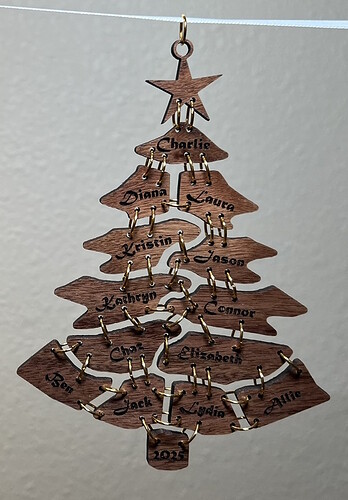 Charlie
Diana Laura
Kristin Jason
Kathryn Connor
Chaz Elizabeth
Ben Jack Lydia Allie
2025